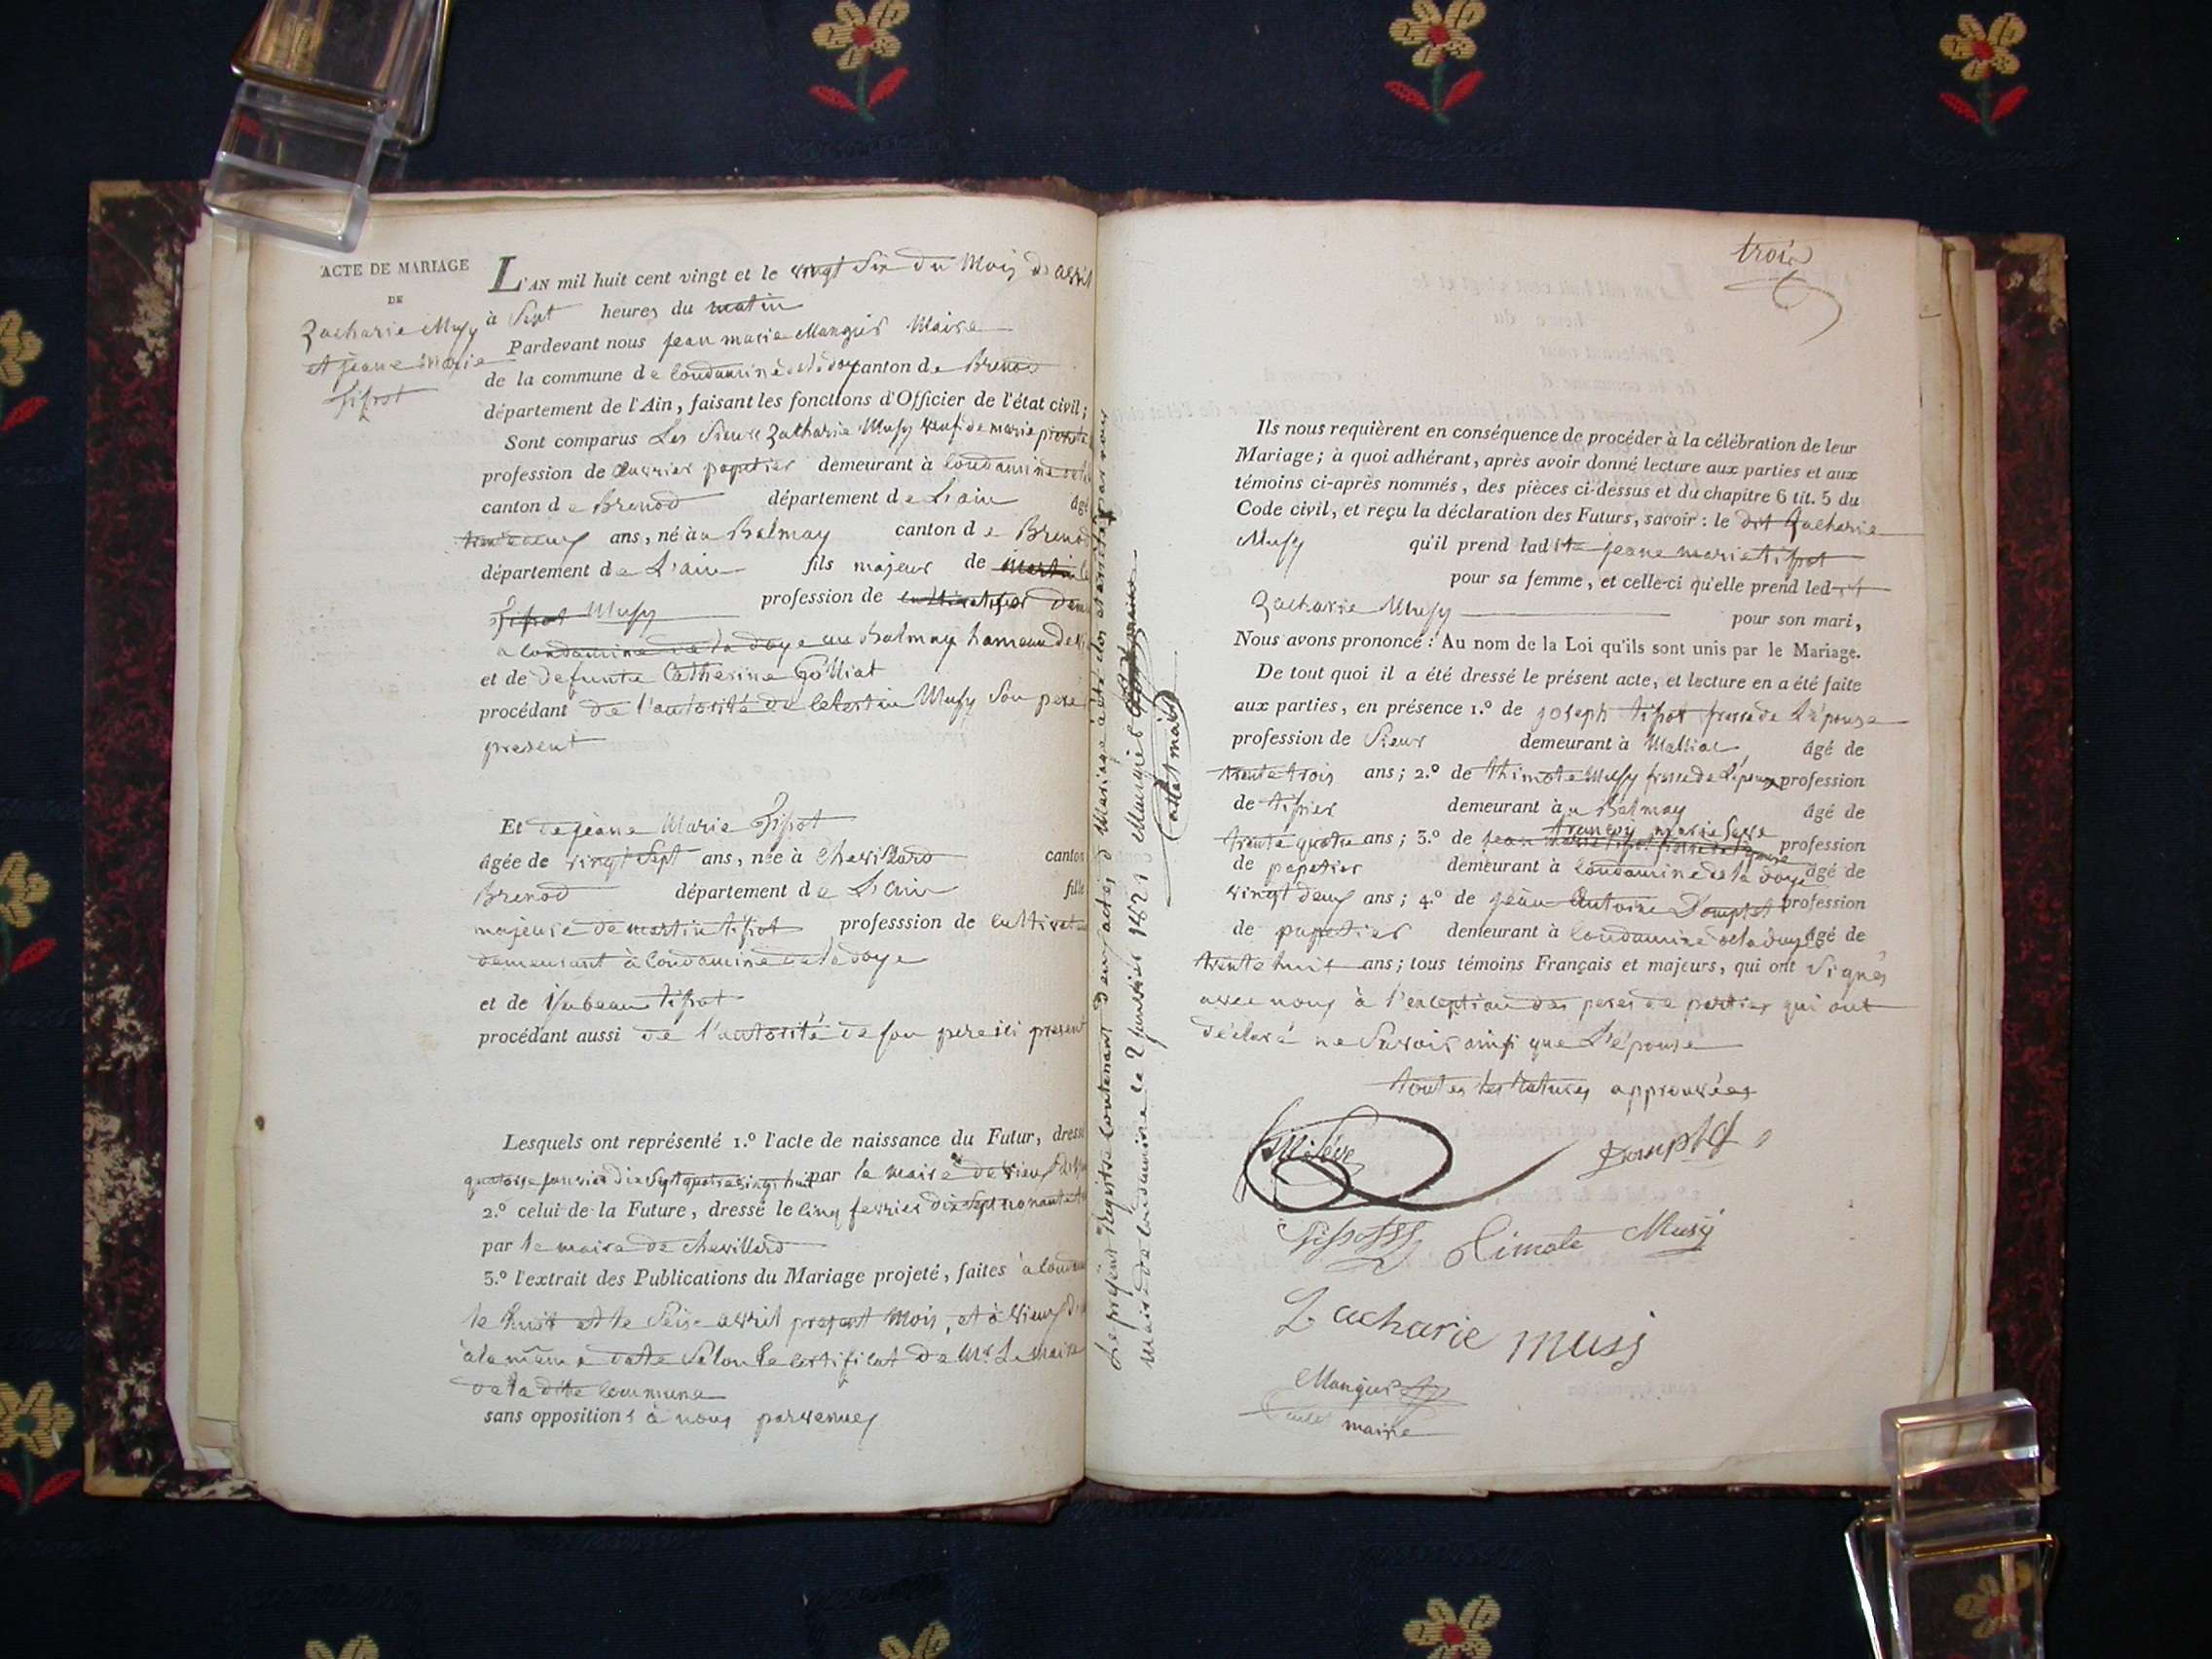 ACTE DE MARIAGE
DE
Zacharie Musy
et jeane marie
tissot
L'AN mil huit cent vingt et le vingt six du Mois d'avril
à Sept heures du matin
Pardevant nous jean marie Manguis Maire
de la commune de Condamine de la doye canton de Brenod
département de l'Ain, faisant les fonctions d'Officier de l'état civil;
Sont comparus Les Sieurs Zacharie Musy veuf de marie
profession de ouvrier papetier demeurant à Condamine
canton de Brenod département de L'ain âgé
ans, né au Balmay canton de Brenod
département de L'ain fils majeur de
tissot Musy profession de cultivateur
a Condamine de la doye au Balmay hameau de
et de defunte Catherine Golliat
procédant de l'autorité de Celestin Musy Son pere
present
Et de jeane Marie tissot
âgée de vingt Sept ans, née à Chevillard canton
Brenod département de L'Ain fille
majeure de martin tissot professsion de cultivateur
demeurant à Condamine de la doye
et de Ysabeau tissot
procédant aussi de l'autorité de son pere ici present
Lesquels ont représenté 1.º l'acte de naissance du Futur, dressé
quatorse janvier dix Sept quatrevingt huit par le maire de Vieux
2.º celui de la Future, dressé le cinq fevrier dix Sept nonante
par le maire de chevillard
3.º l'extrait des Publications du Mariage projeté, faites à
le huit et le Seise avril present Mois, et à Vieux
à la même date Selon Le certificat de Mr. Le Maire
de la dite Commune
sans oppositions à nous parvenues
Le présent Registre Contenant deux actes d Mariage a été clos et arrêté par nous
Maire de Condamine le 2 janvier 1821 Manguis
trois
Ils nous requièrent en conséquence de procéder à la célébration de leur
Mariage; à quoi adhérant, après avoir donné lecture aux parties et aux
témoins ci-après nommés, des pièces ci-dessus et du chapitre 6 tit. 5 du
Code civil, et reçu la déclaration des Futurs, savoir: le dit Zacharie
Musy qu'il prend ladite jeane marie tissot
pour sa femme, et celle-ci qu'elle prend ledit
Zacharie Musy pour son mari,
Nous avons prononcé: Au nom de la Loi qu'ils sont unis par le Mariage.
De tout quoi il a été dressé le présent acte, et lecture en a été faite
aux parties, en présence 1.º de joseph tissot frere de L'épouse
profession de Sieur demeurant à Malliat âgé de
trente trois ans; 2.º de thimote Musy frere de L'époux profession
de tissier demeurant au Balmay âgé de
trente quatre ans; 3.º de francois marie Seve profession
de papetier demeurant à Condamine de la doye âgé de
vingt deux ans; 4.º de jean Antoine Domptet profession
de papetier demeurant à Condamine de la doye âgé de
trente huit ans; tous témoins Français et majeurs, qui ont Signés
avec nous à l'exception des peres de parties qui ont
déclaré ne Savoir ainsi que L'épouse
toutes les ratures approuvées
Domptet
tissot
timote Musy
Zacharie musy
Manguis
maire